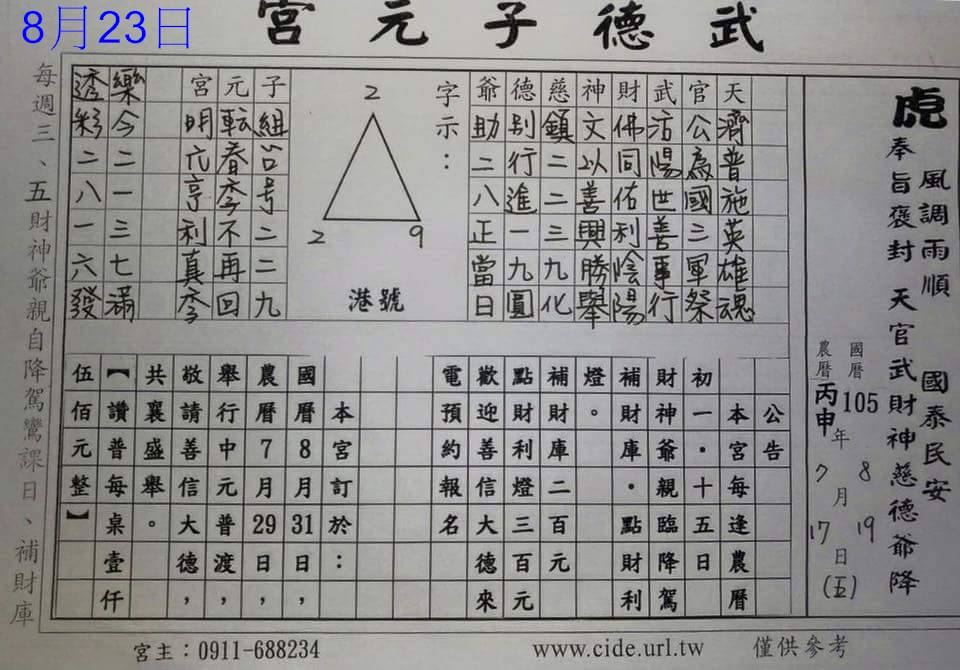 8月23日
武德子元宮
虎
風調雨順　國泰民安
奉旨褒封　天官武財神慈德爺降
國曆105年8月19日(五)
農曆丙申年7月17日
天濟普施英雄魂
官公為國三軍祭
武活陽世善事行
財佛同佑利陰陽
神文以善興勝舉
慈鎮二二三九化
德別行進一九圓
爺助二八正當日
字示：
2
2
9
港號
子組合号二二九
元転春季不再回
宮明六亨利真季
樂今二一三七滿
透彩二八一六發
公告
本宮每逢農曆
初一．十五日
財神爺親臨降駕
補財庫．點財利
燈。
補財庫二百元
點財利燈三百元
歡迎善信大德來
電預約報名
本宮訂於：
國曆8月31日，
農曆7月29日，
舉行中元普渡，
敬請善信大德，
共襄盛舉。
【讚普每桌壹仟
伍佰元整】
每週三、五財神爺親自降駕鸞課日、補財庫
宮主：0911-688234
www.cide.url.tw
僅供參考